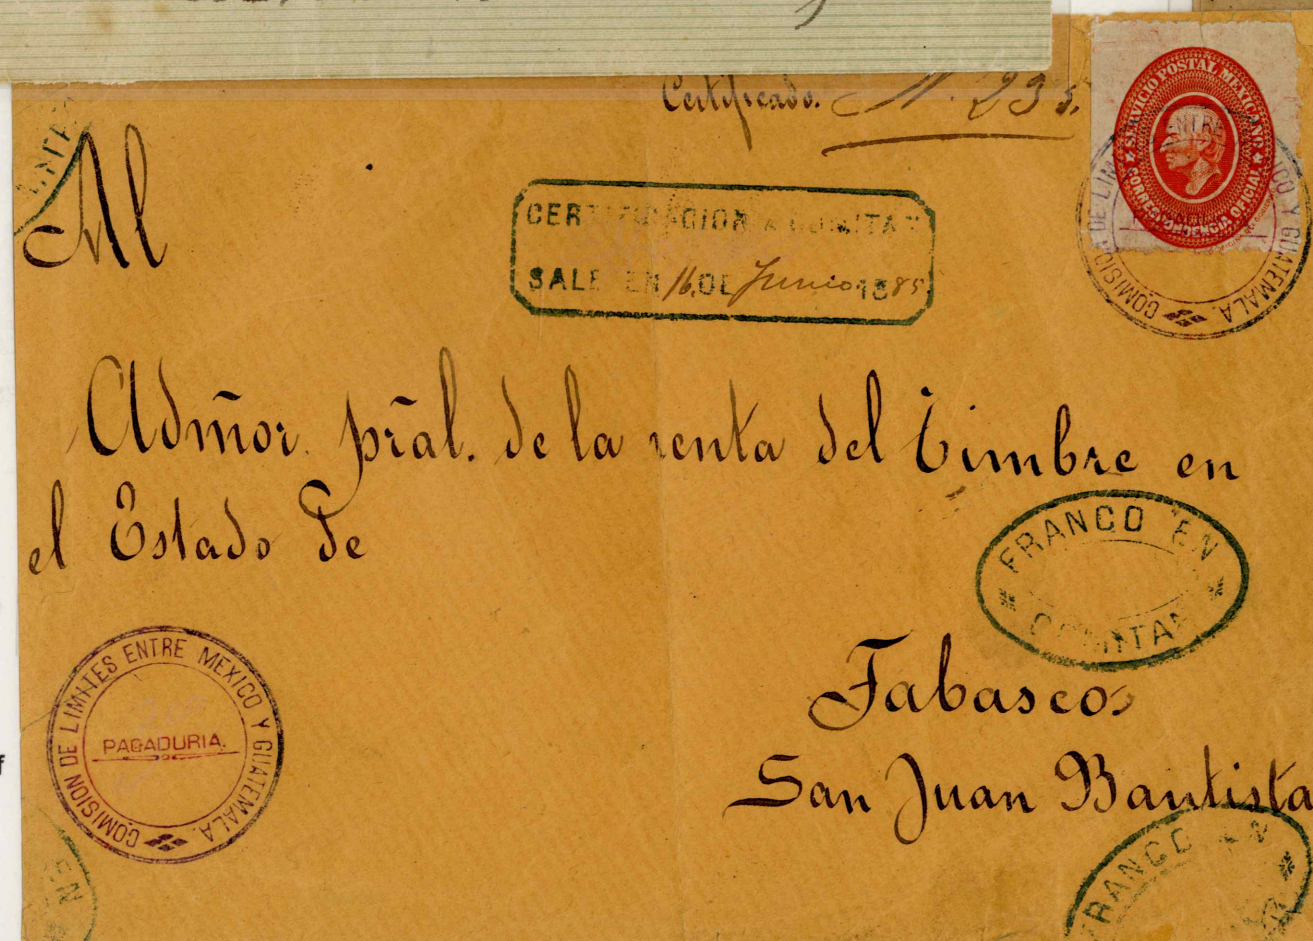 Certificado. N. 235.
SERVICIO POSTAL MEXICANO
CORRESPONDENCIA OFICIAL
COMISION DE LIMITES ENTRE MEXICO Y GUATEMALA.
Al
CERTIFICACION COMITAN
SALE EN 16 DE Junio 1885
Admōr. prāl. de la renta del Timbre en
el Estado de
FRANCO EN
COMITAN
Tabasco
San Juan Bautista
COMISION DE LIMITES ENTRE MEXICO Y GUATEMALA.
PAGADURIA.
FRANCO EN
EN